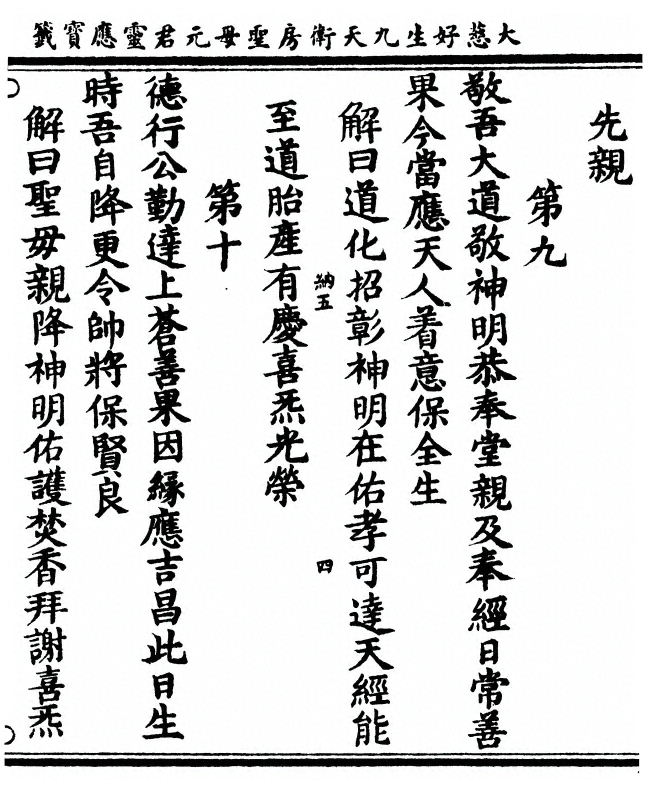 大慈好生九天衛房聖母元君靈應寶籤
先親
第九
敬吾大道敬神明恭奉堂親及奉經日常善
果今當應天人着意保全生
解曰道化招彰神明在佑孝可達天經能
納五
四
至道胎產有慶喜炁光榮
第十
德行公勤達上蒼善果因緣應吉昌此日生
時吾自降更令帥將保賢良
解曰聖母親降神明佑護焚香拜謝喜炁